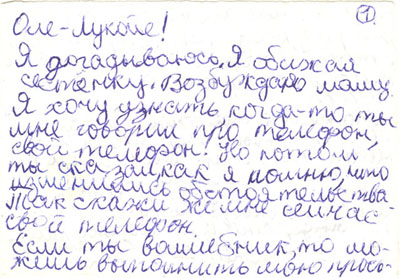 1.
Оле-Лукойе!
Я догадываюсь, Я обижал
сестёнку. Возбуждаю маму.
Я хочу узнать, когда-то ты
мне говорил про телефон,
свой телефон. Но потом,
ты сказал, как я помню, что
изменились обстоятельства
Так скажи же мне сейчас-
свой телефон.
Если ты валшебник, то мо-
жешь выполнить мою прось-